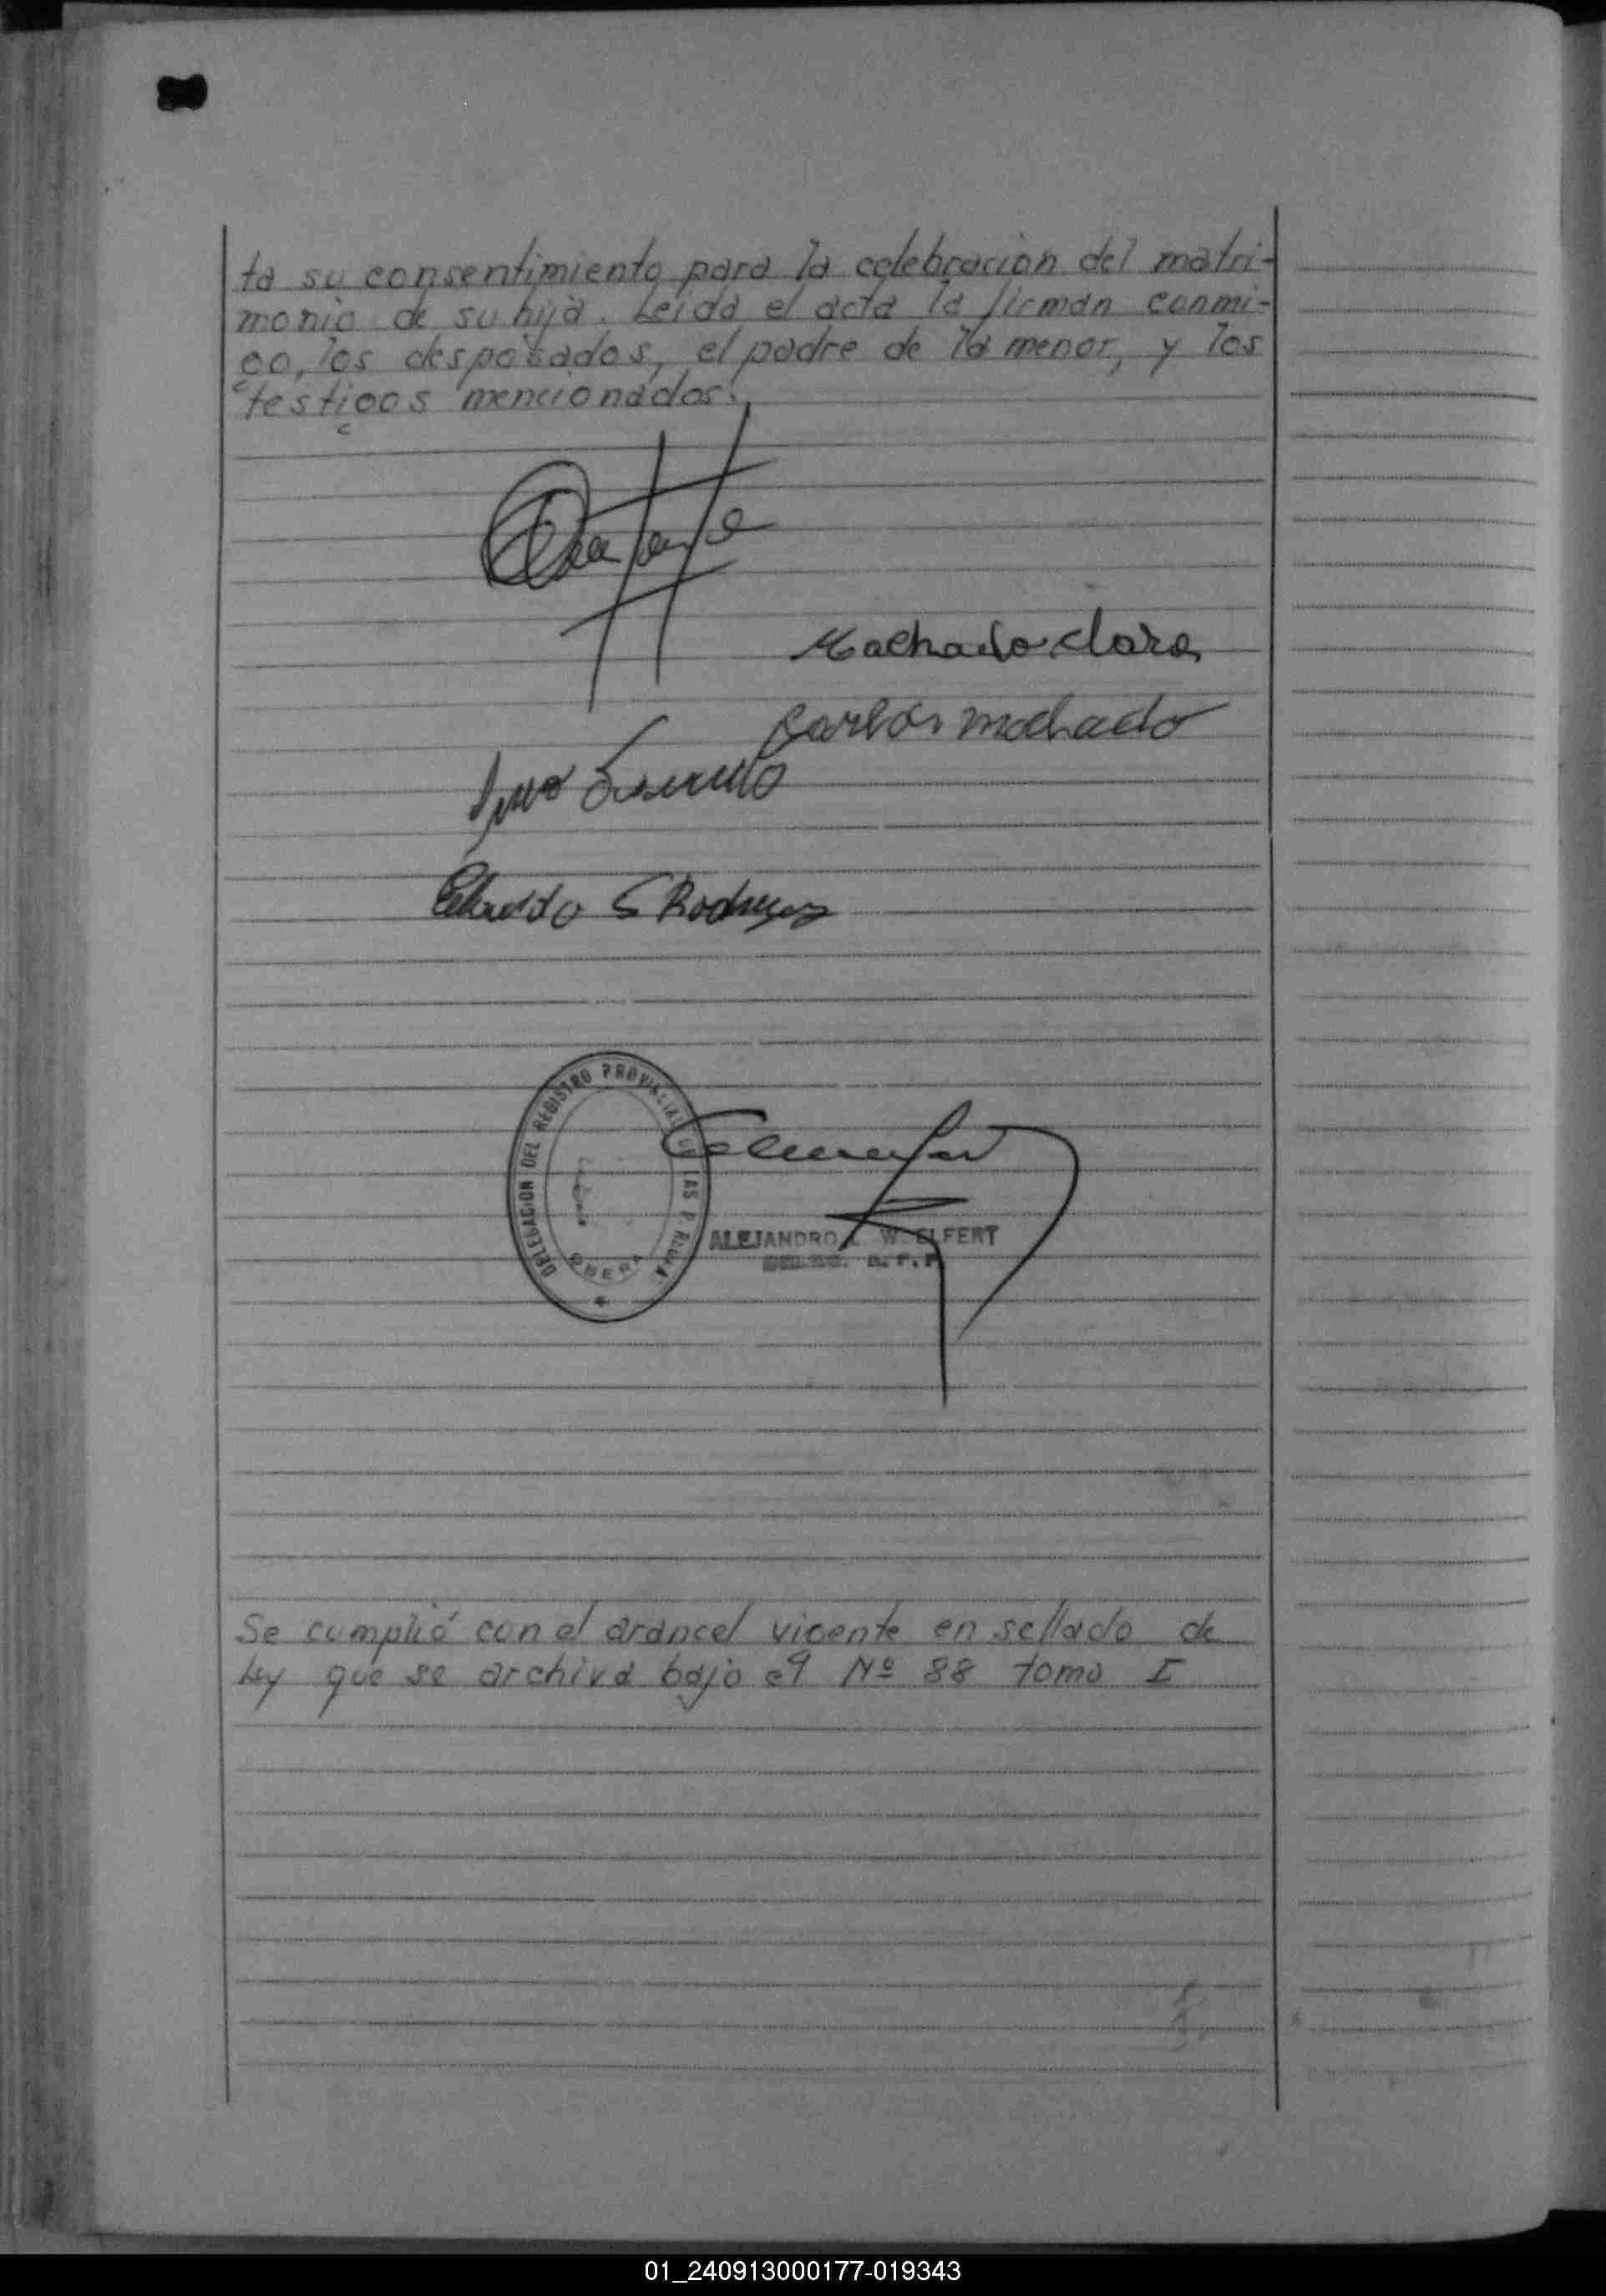 ta su consentimiento para la celebración del matri-
monio de su hija. Leída el acta la firman conmi-
go, los desposados, el padre de la menor, y los
testigos mencionados.
Machado Clara
Carlos Machado
S Rodriguez
DELEGACION DEL REGISTRO PROVINCIAL DE LAS P.
OBERA
ALEJANDRO WELFERT
DELEG. R.P.P.
Se cumplió con el arancel vigente en sellado de
Ley que se archiva bajo el Nº 88 tomo I
01_240913000177-019343